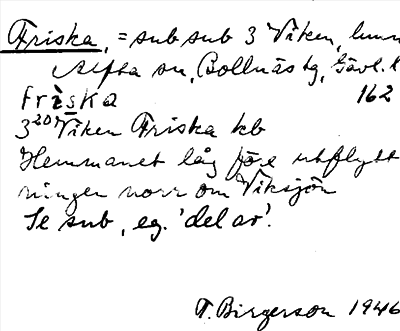 Friska, = sub sub 3 Viken, hemm
Alfta sn, Bollnäs tg, Gävl. l
friska 162
3²⁰ Viken Friska kb
Hemmanet låg före utflytt
ningen norr om Viksjön
Se sub, eg. 'del av'.
T. Birgerson 1946